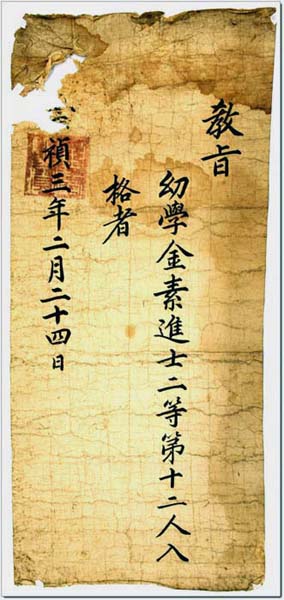 教旨
幼學金素進士二等第十二人入
格者
禎三年二月二十四日